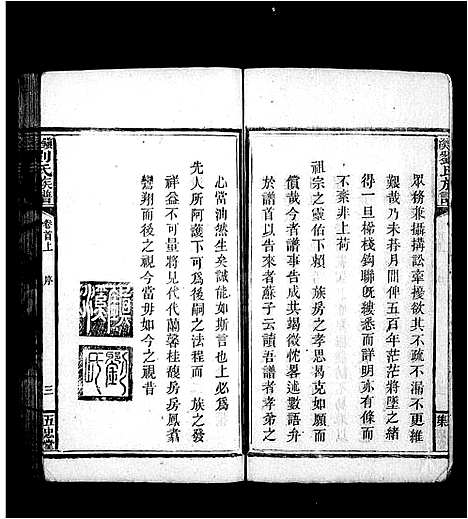 眾務兼攝搆訟牽擾欲其不疏不漏不更維
艱哉乃未朞月間俾五百年茫茫將墜之緒
得一旦梯棧鈎聯既纏悉而詳明亦有條而
不紊非上荷
祖宗之靈佑下賴　族房之孝思曷克如願以
償哉今者譜事告成共竭微忱畧述數語弁
於譜首以告來者蘇子云讀吾譜者孝弟之
心當油然生矣誠能如斯言也上必爲
先人所阿護下可爲後嗣之法程而　族之發
祥益不可量將見代代蘭馨桂馥房房鳳翥
鸞翔而後之視今當毋如今之視昔
劉氏族譜
卷首上
序
三
五忠堂